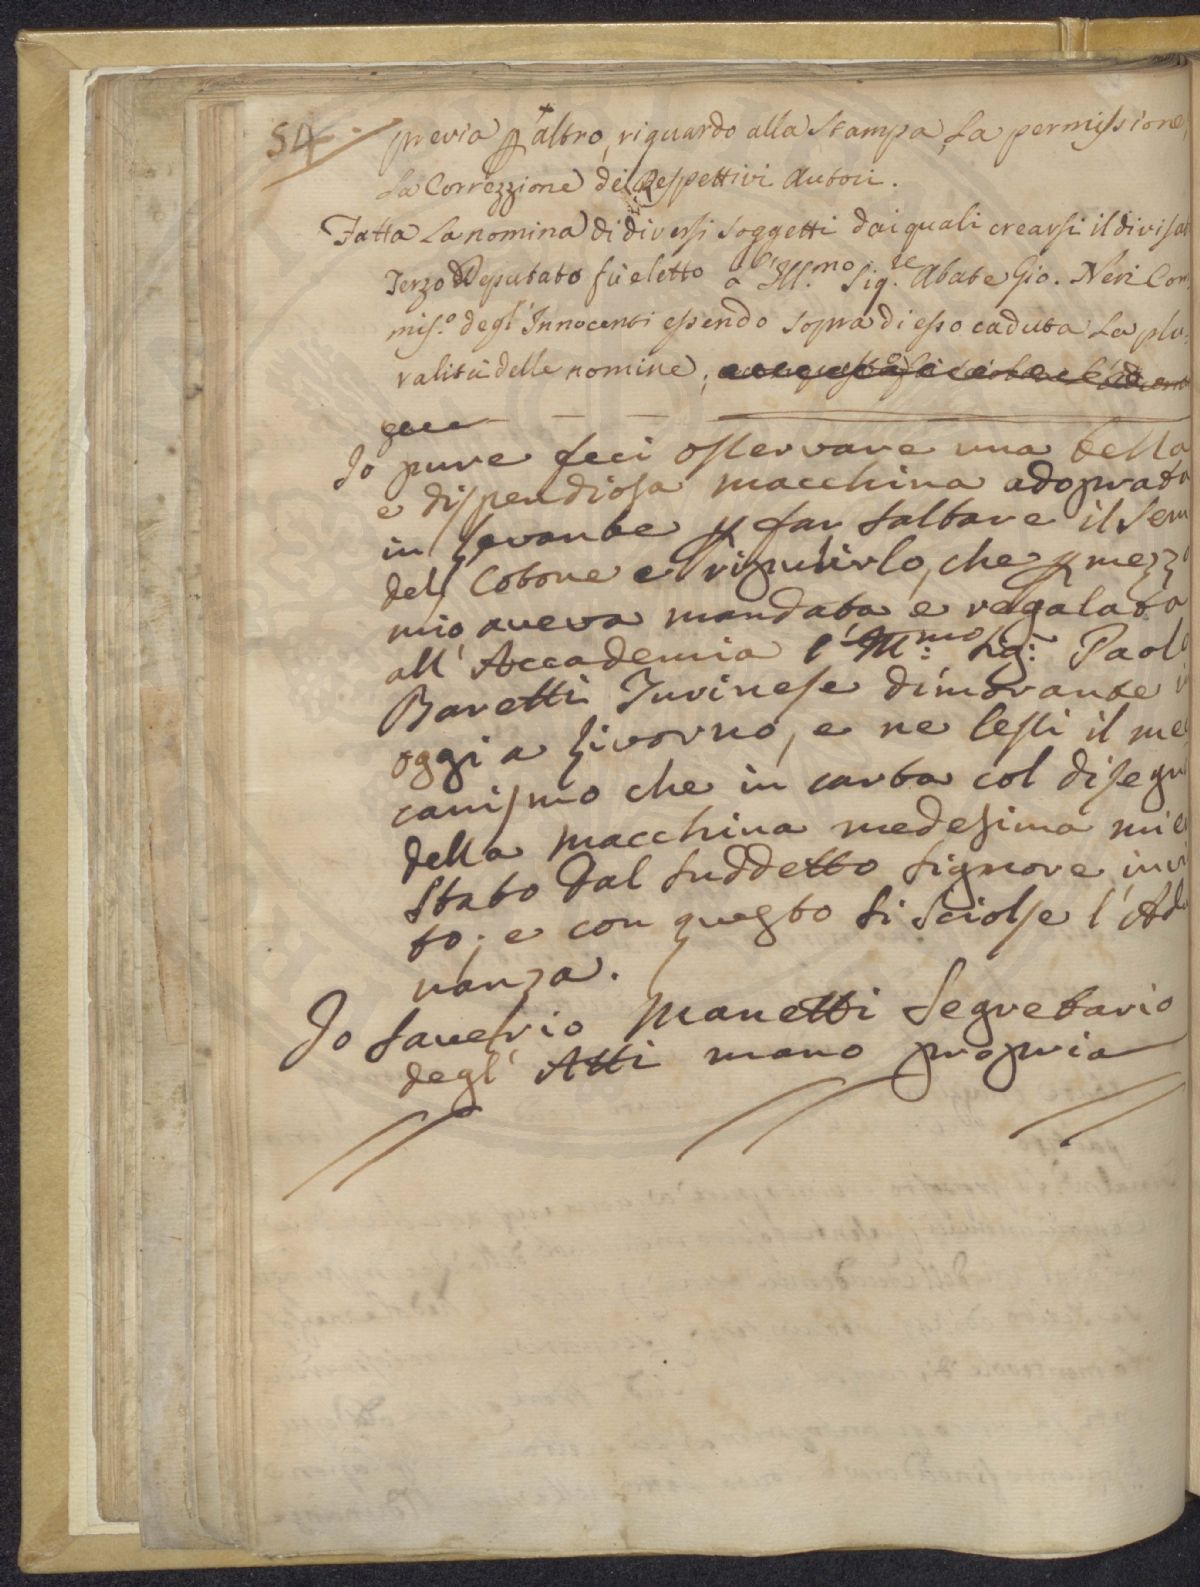 54
previa p altro, riguardo alla Stampa, la permissione,
la Correzzione dei Respettivi Autori.
Fatta la nomina di diversi Soggetti dai quali crearsi il divisat
Terzo Deputato fù eletto l'Ill.mo Sig.re Abate Gio. Neri Com
mis.o degl'Innocenti essendo sopra di esso caduta la plu:
ralità delle nomine;
Io pure feci osservare una bella
e dispendiosa macchina adoprata
in Levante p far saltare il Sem
del Cotone e ripulirlo, che p mezz
mio aveva mandata e regalata
all'Accademia l'Ill.mo Sig.r Paol
Baretti Turinese dimorante i
oggi a Livorno, e ne lessi il me
canismo che in carta col disegn
della macchina medesima mi è
stato dal suddetto Signore invi
to; e con questo si sciolse l'Ad
nanza.
Io Saverio Manetti Segretario
degl'Atti mano propria